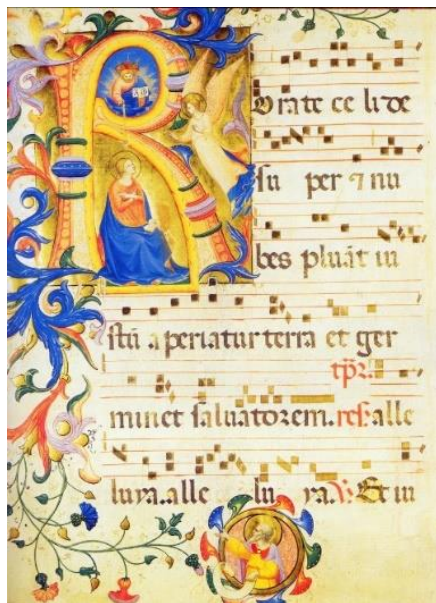 Rorate celi de
su per ⁊ nu
bes pluāt iu
stū aperiatur terra et ger
tp̄r.
minet saluatorem. res. alle
luya. alle lu ya. V. Et in